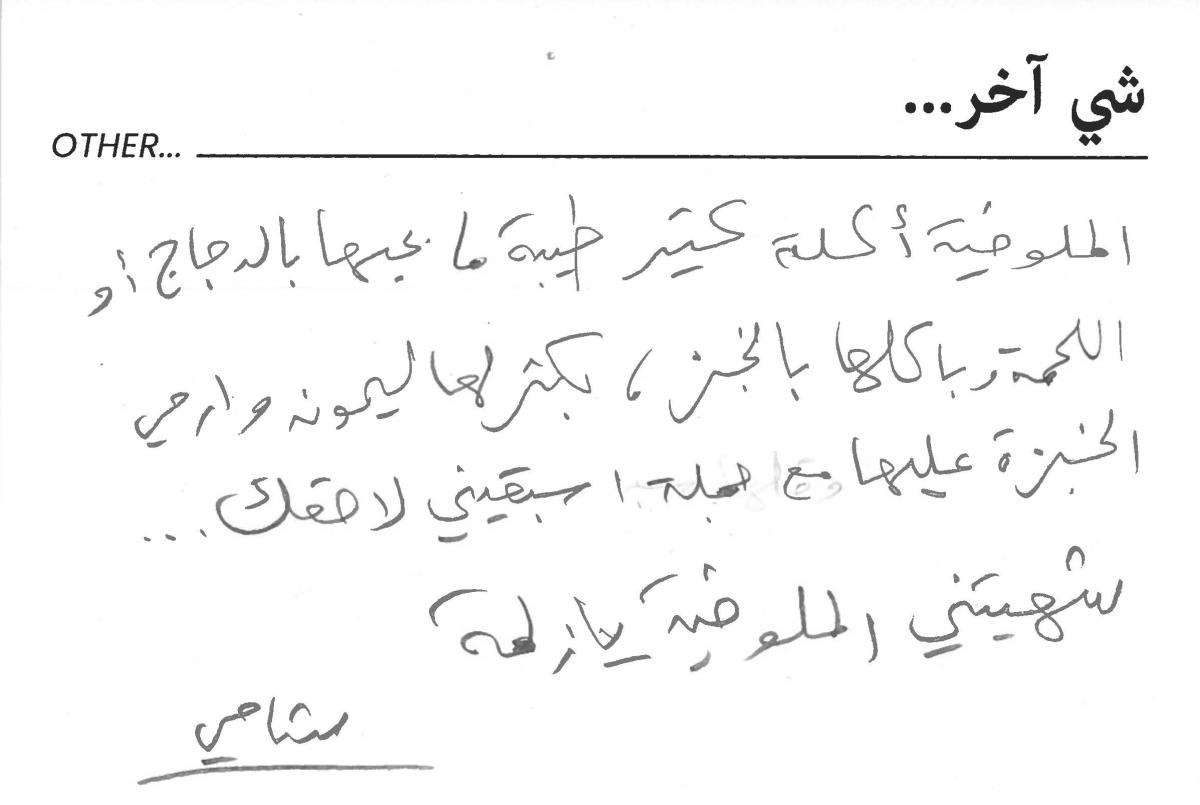 شي آخر...
OTHER...
الملوخية أكلة كتير طيبة ما بحبها بالدجاج أو
اللحمة وباكلها بالخبز، بكثرلها ليمونه وارمي
الخبزة عليها مع جملة اسبقيني لاحقك...
شهيتني الملوخية يا زلمة